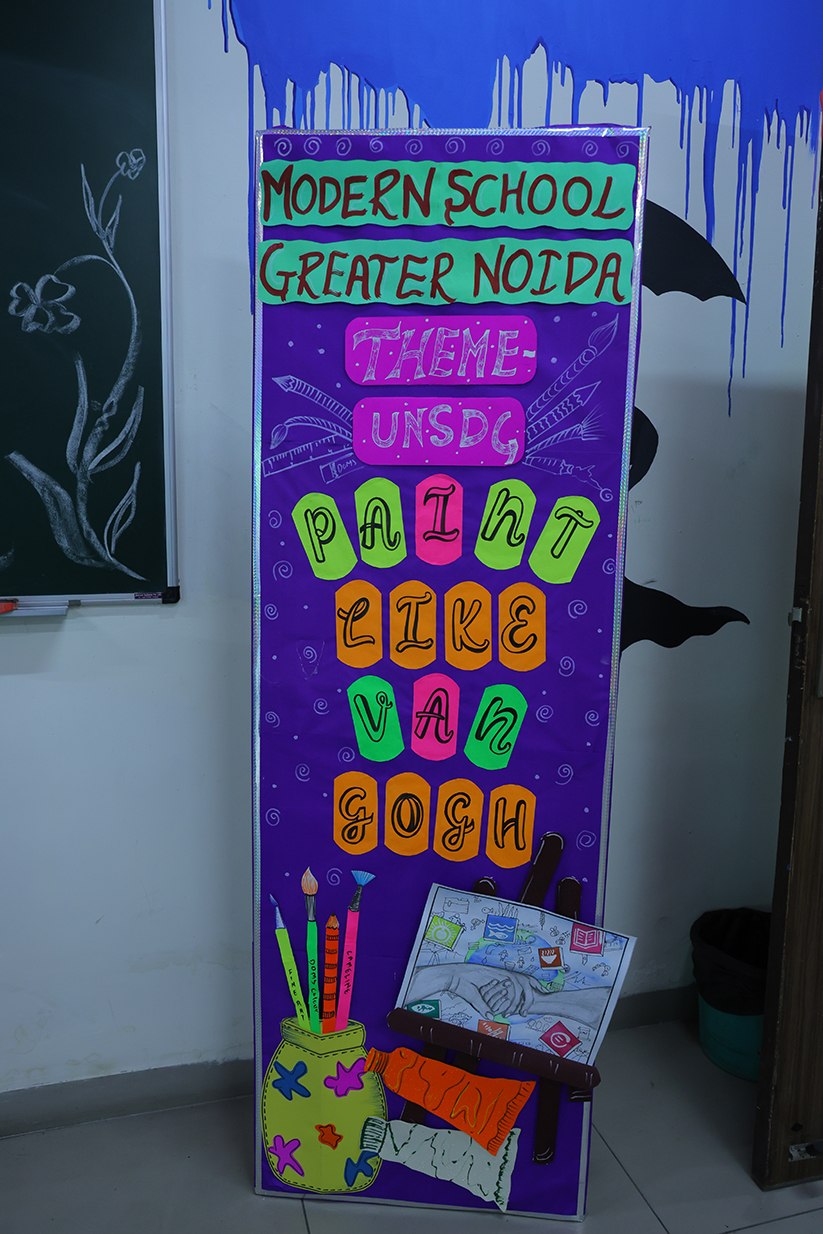 MODERN SCHOOL
GREATER NOIDA
THEME-
UNSDG
PAINT
LIKE
VAN
GOGH
FINE ART